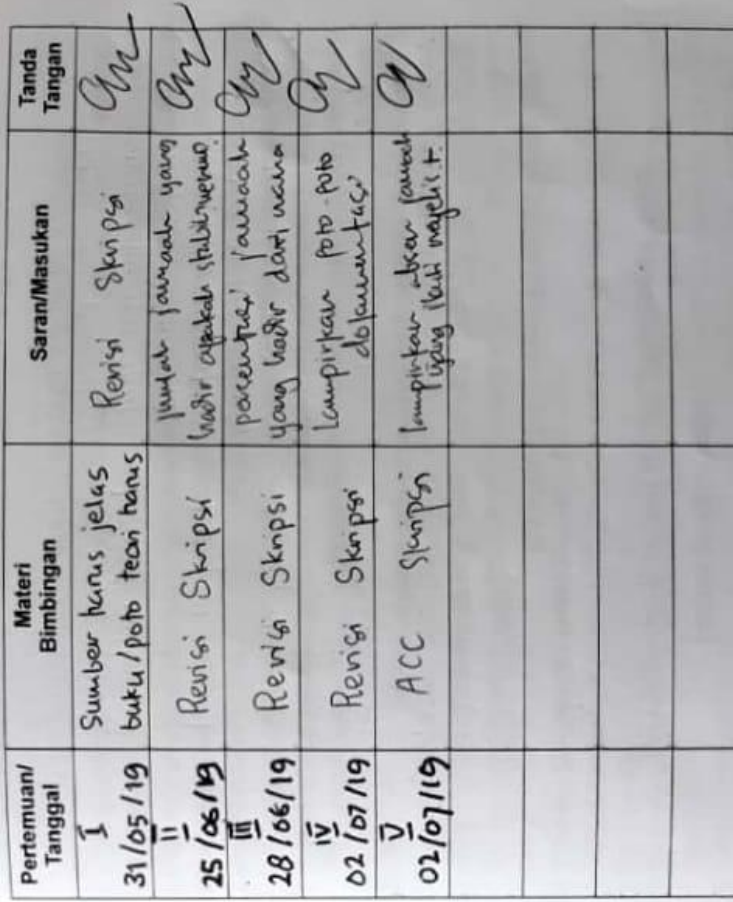 Pertemuan/
Tanggal
Materi
Bimbingan
Saran/Masukan
Tanda
Tangan
I
31/05/19
Sumber harus jelas
buku/poto teori harus
Revisi Skripsi
II
25/06/19
Revisi Skripsi
jumlah jamaah yang
hadir apakah stabil
III
28/06/19
Revisi Skripsi
jamaah
yang hadir dari mana
IV
02/07/19
Revisi Skripsi
Lampirkan poto-poto
dokumentasi
V
02/07/19
ACC Skripsi
lampirkan absen jamaah
yang ikuti majelis t.